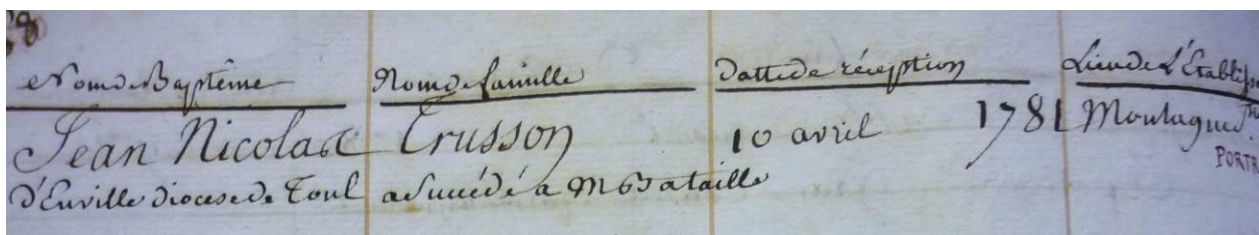 Nom de Baptême Nom de famille datte de réception Lieu de L'Établiss
Jean Nicolas Trusson 10 avril 1781 Montagne
PORTR
d'Enville diocese de Toul a Succédé a M Bataille